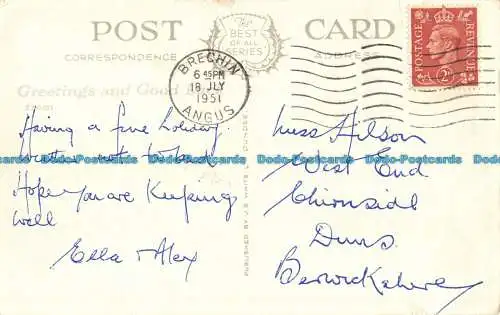 POST CARD
The
BEST
OF ALL
SERIES
CORRESPONDENCE
ADDRESS
BRECHIN
6 45PM
18 JLY
1951
ANGUS
POSTAGE
REVENUE
2D
Greetings and Good
from
Having a fine holiday
weather not
Hope you are Keeping
well
Ella & Alex
PUBLISHED BY J.B. WHITE
DUNDEE
Miss Hilson
West End
Chirnside
Duns
Berwickshire
Dodo-Postcards Dodo-Postcards Dodo-Postcards Dodo-Postcards Dodo-Postcards